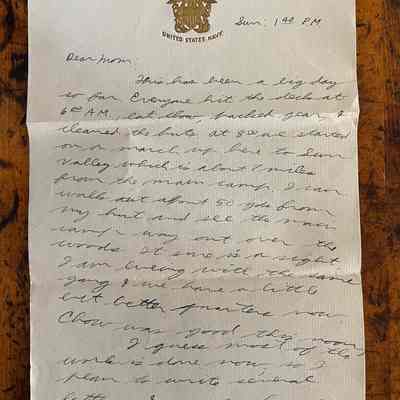 UNITED STATES NAVY
Sun. 1 40 PM
Dear Mom,
This has been a big day
so far. Everyone hit the deck at
6:00 AM, eat chow, packed gear &
cleaned the huts at 8:00 we started
on a march up here to Sun
Valley which is about 7 miles
from the main camp. I can
walk out about 50 yds from
my hut and see the main
camp way out over the
woods. It sure is a sight
I am living with the same
gang & we have a little
bit better quarters now
Chow was good this noon,
I guess most of the
work is done now so I
plan to write several